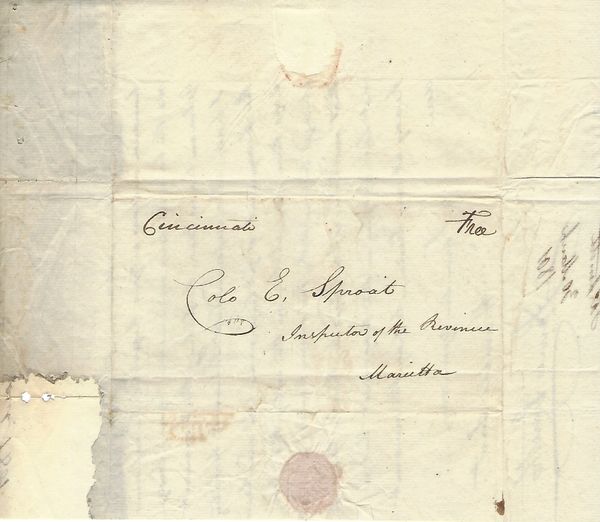 Cincinnati
Free
Colo E. Sproat
Inspector of the Revinue
Marietta